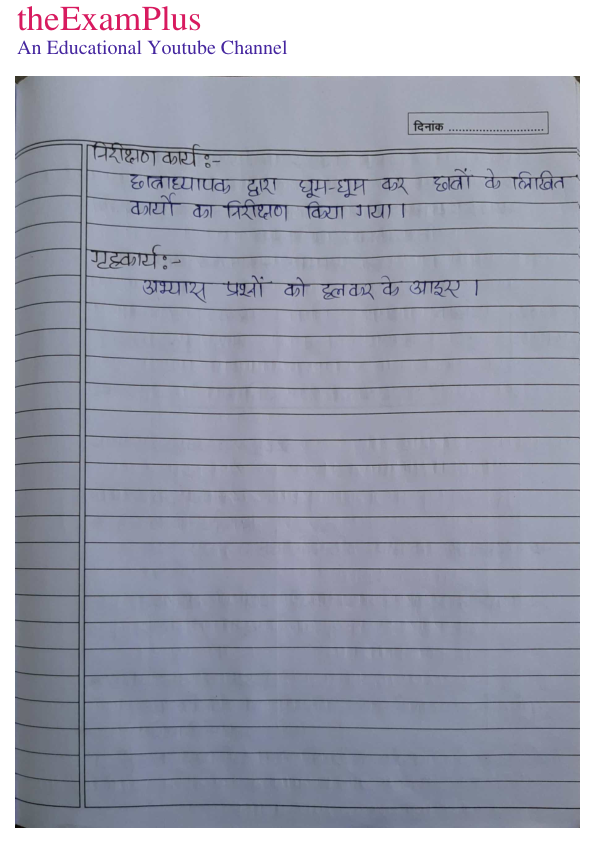 theExamPlus
An Educational Youtube Channel
दिनांक ............................
निरीक्षण कार्य :-
छात्राध्यापक द्वारा घूम-घूम कर छात्रों के लिखित
कार्यों का निरीक्षण किया गया ।
गृहकार्य :-
अभ्यास प्रश्नों को हलकर के आइए ।